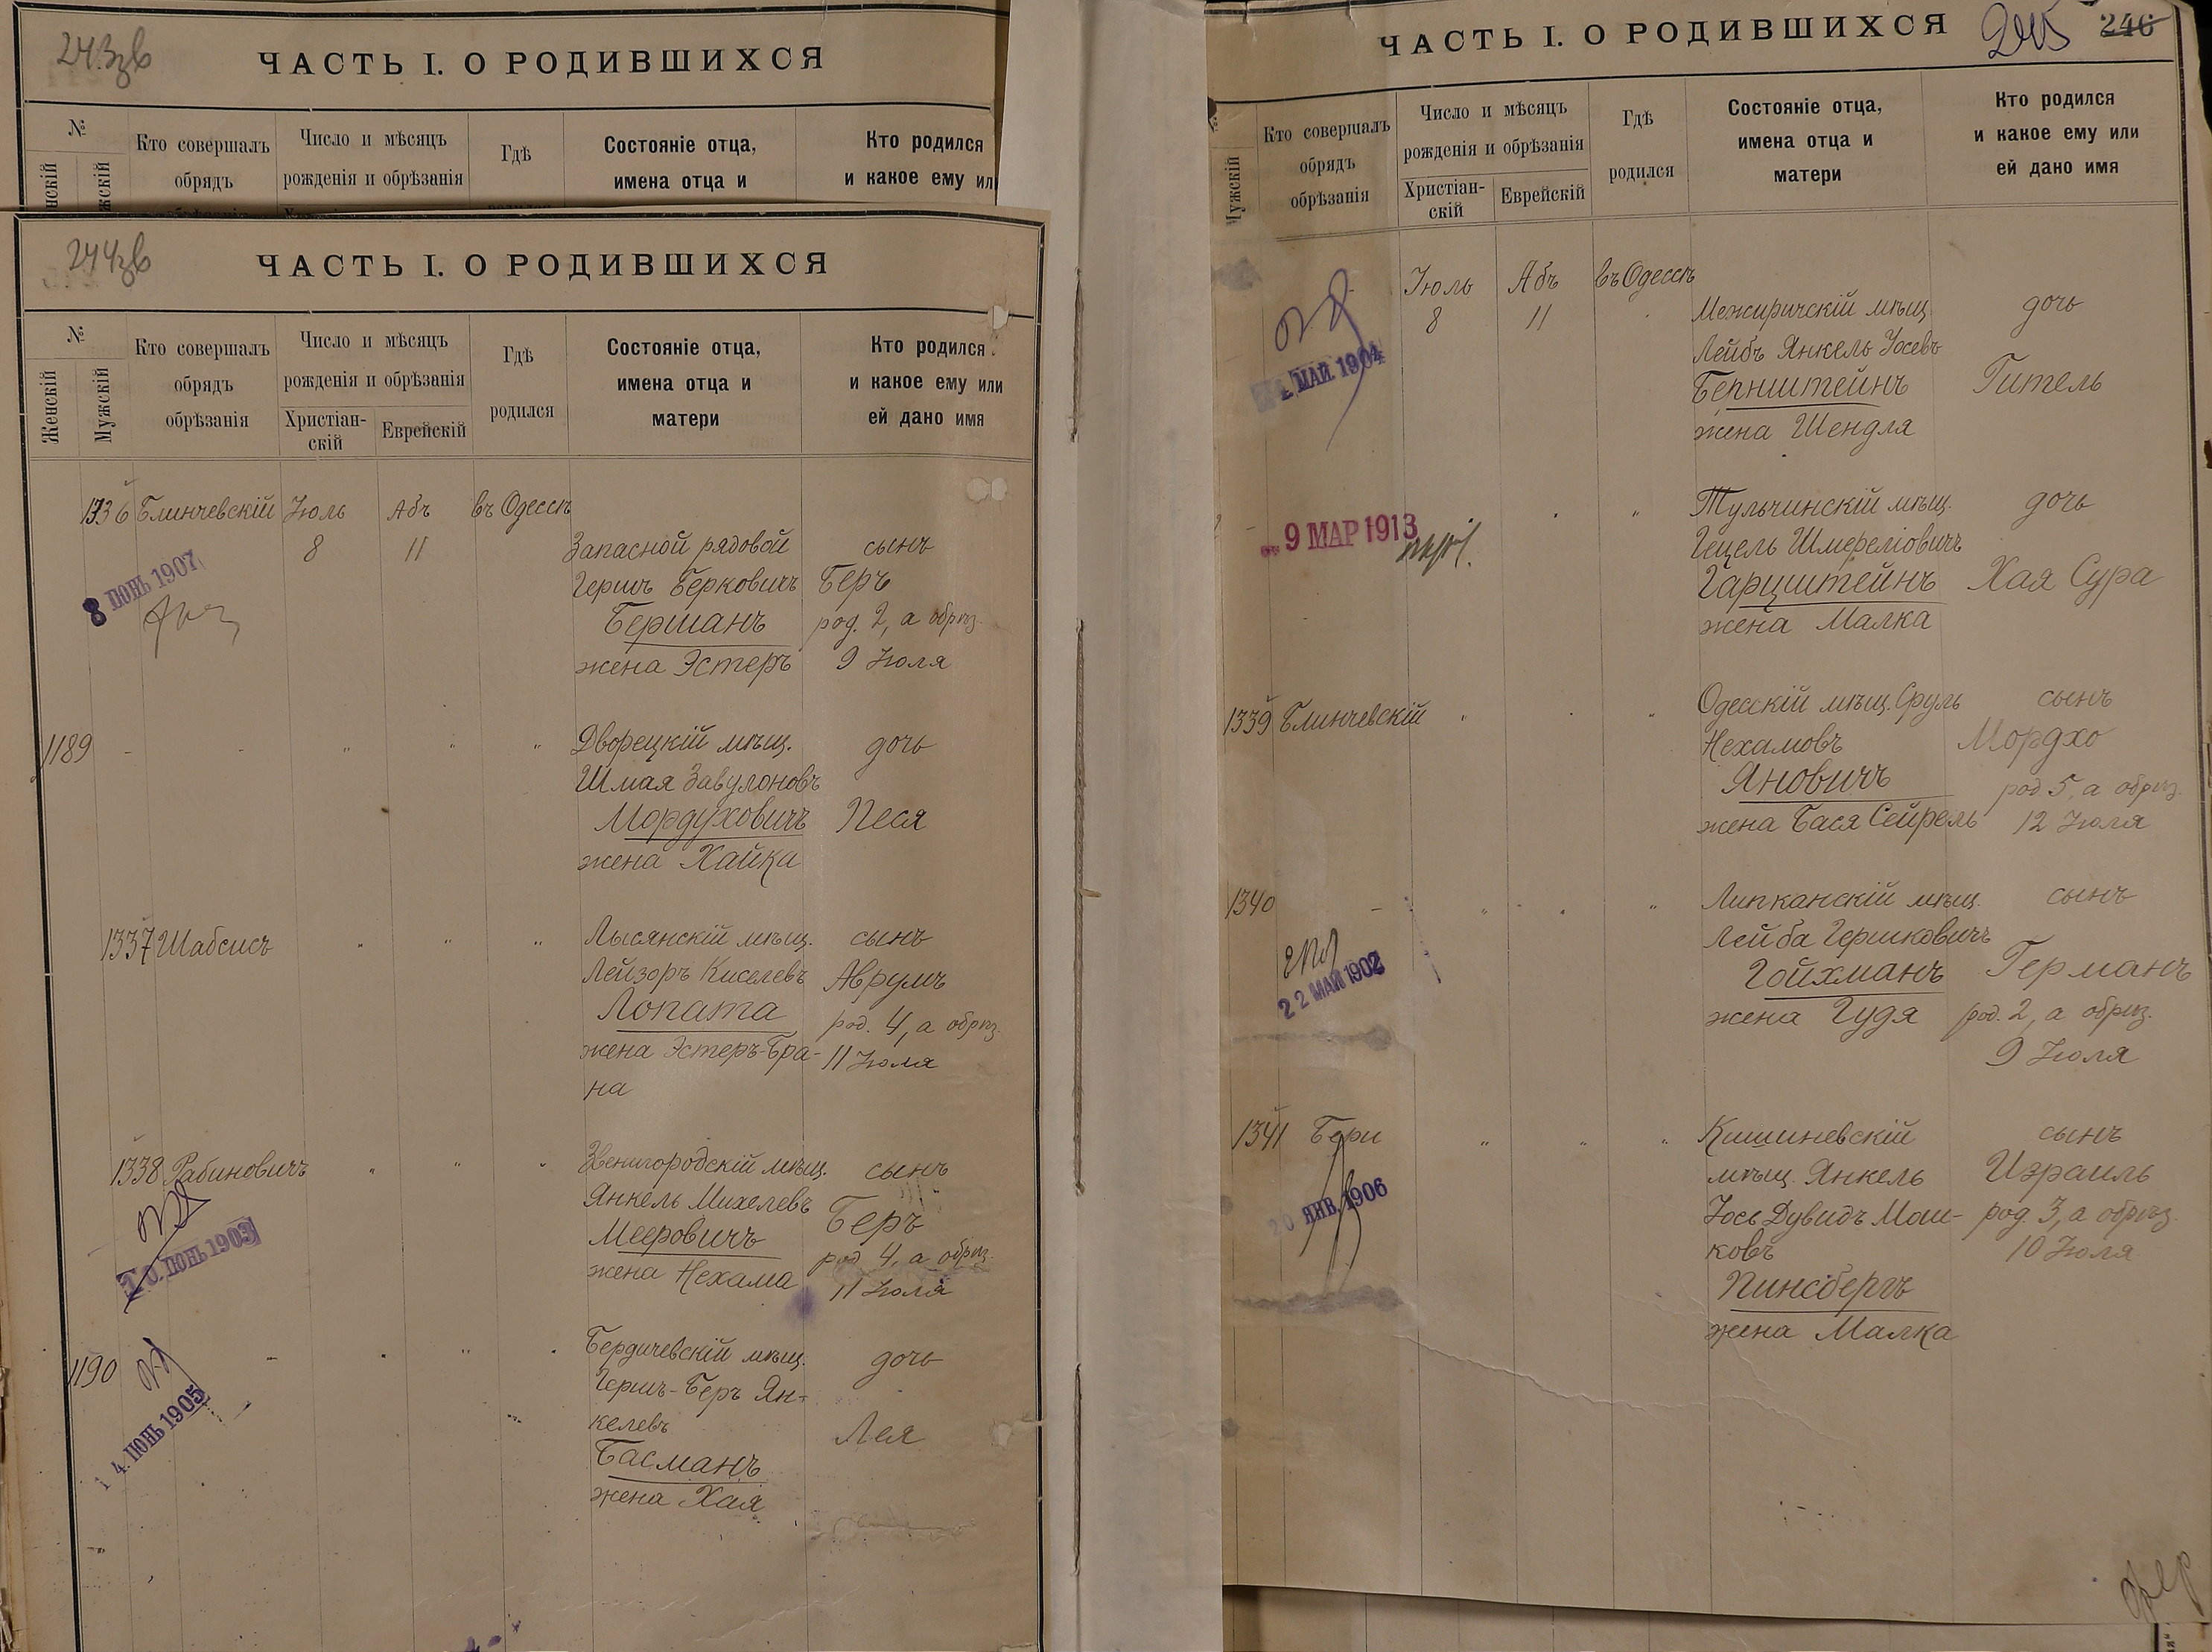 243зв
ЧАСТЬ I. О РОДИВШИХСЯ
№
Кто совершалъ
обрядъ
Число и мѣсяцъ
рожденія и обрѣзанія
Гдѣ
Состояніе отца,
имена отца и
Кто родился
и какое ему или
244зв
ЧАСТЬ I. О РОДИВШИХСЯ
№
Женскій
Мужскій
Кто совершалъ
обрядъ
обрѣзанія
Число и мѣсяцъ
рожденія и обрѣзанія
Христіан-
скій
Еврейскій
Гдѣ
родился
Состояніе отца,
имена отца и
матери
Кто родился
и какое ему или
ей дано имя
1336 Блинчевскій Іюль Абъ въ Одессѣ
8 11
Запасной рядовой
Гершъ Берковичъ
Бершанъ
жена Эстеръ
сынъ
Беръ
род. 2, а обрѣз.
9 Іюля
8 ІЮНЬ 1907
1189 - - " " "
Дворецкій мѣщ.
Шмая Завулоновъ
Мордуховичъ
жена Хайка
дочь
Песя
1337 Шабсисъ " " "
Лысянскій мѣщ.
Лейзоръ Киселевъ
Лопата
жена Эстеръ-Бра-
на
сынъ
Аврумъ
род. 4, а обрѣз.
11 Іюля
1338 Рабиновичъ " " "
Звенигородскій мѣщ.
Янкель Михелевъ
Мееровичъ
жена Нехама
сынъ
Беръ
род 4, а обрѣз.
11 Іюля
10. ІЮНЬ 1903
1190 - " " "
Бердичевскій мѣщ.
Гершъ-Беръ Ян-
келевъ
Басманъ
жена Хая
дочь
Лея
14. ІЮНЬ 1905
ЧАСТЬ I. О РОДИВШИХСЯ
245 246
Мужскій
Кто совершалъ
обрядъ
обрѣзанія
Число и мѣсяцъ
рожденія и обрѣзанія
Христіан-
скій
Еврейскій
Гдѣ
родился
Состояніе отца,
имена отца и
матери
Кто родился
и какое ему или
ей дано имя
Іюль Абъ въ Одессѣ
8 11
Межиричскій мѣщ
Лейбъ Янкель Іосевъ
Бернштейнъ
жена Шендля
дочь
Гитель
МАЙ. 1904
Тульчинскій мѣщ.
Гецель Шмереліовичъ
Гарцштейнъ
жена Малка
дочь
Хая Сура
9 МАР 1913
1339 Блинчевскій " " "
Одесскій мѣщ. Сруль
Нехамовъ
Яновичъ
жена Бася Сейрель
сынъ
Мордхо
род 5, а обрѣз.
12 Іюля
1340 - " " "
Липканскій мѣщ.
Лейба Гершковичъ
Гойхманъ
жена Гудя
сынъ
Германъ
род. 2, а обрѣз.
9 Іюля
22 МАЙ 1902
1341 Бери " " "
Кишиневскій
мѣщ. Янкель
Іось Дувидъ Мош-
ковъ
Пинсбергъ
жена Малка
сынъ
Израиль
род. 3, а обрѣз.
10 Іюля
20 ЯНВ. 1906